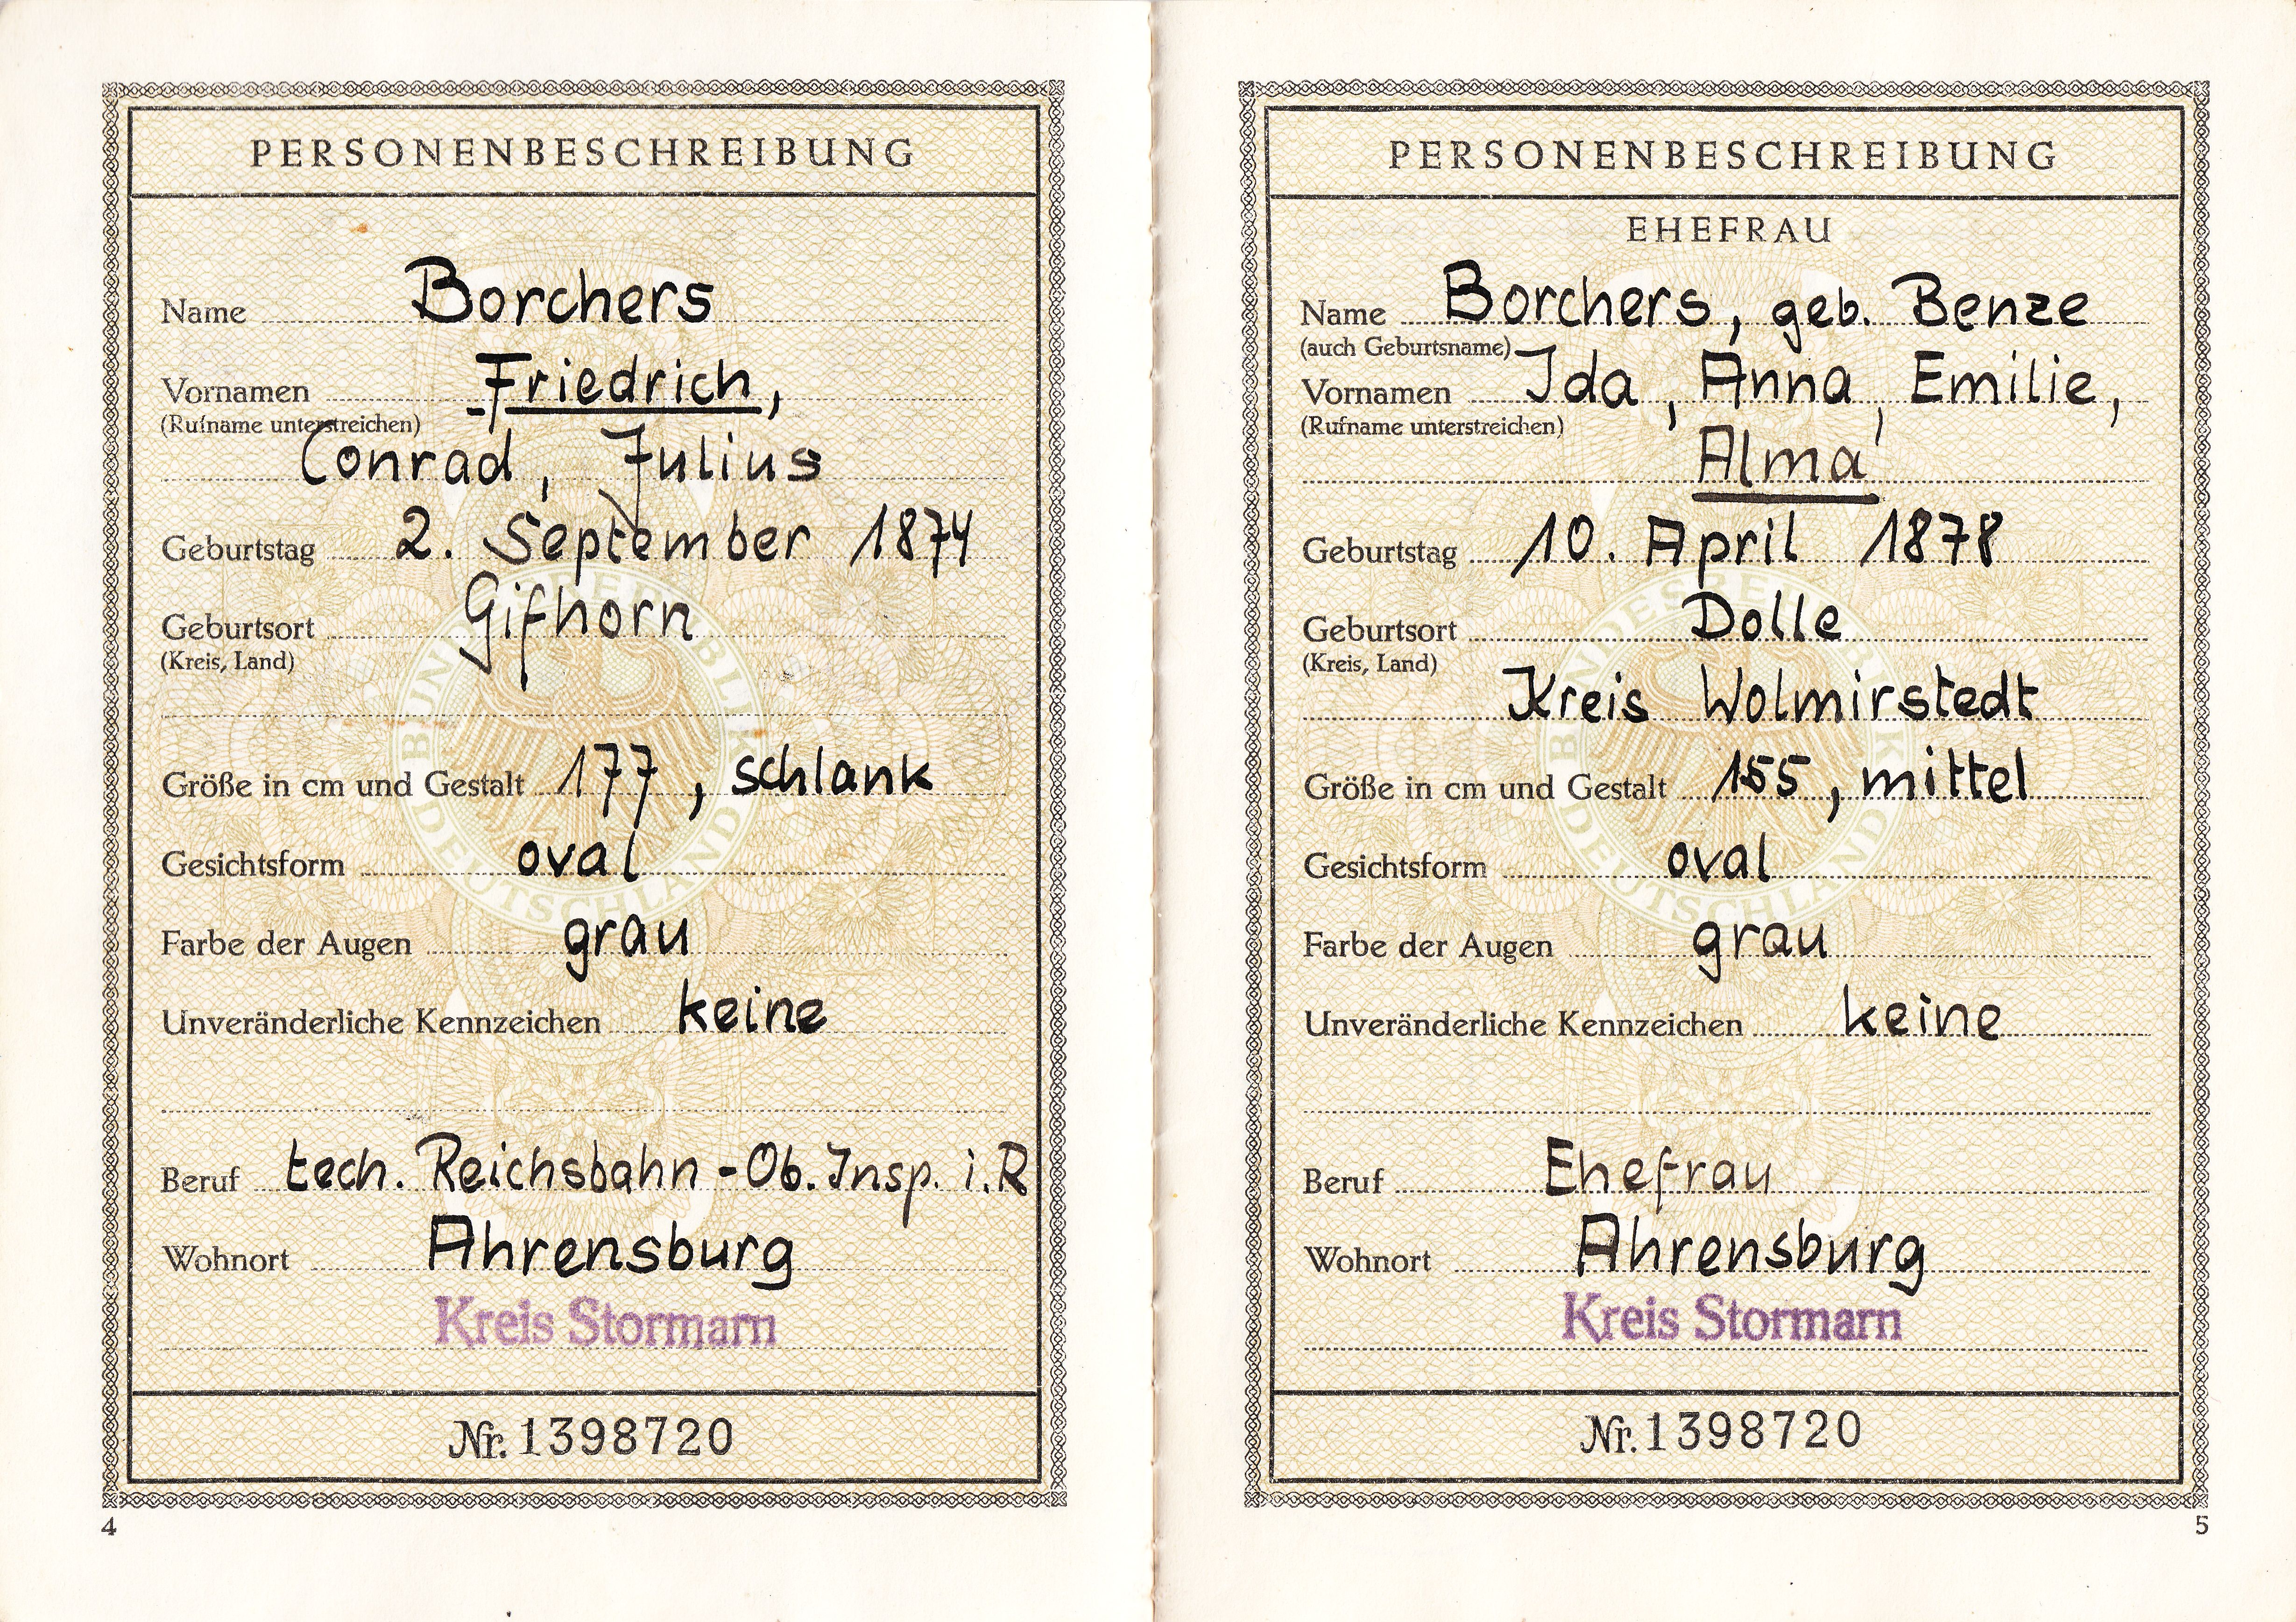 PERSONENBESCHREIBUNG
Name Borchers
Vornamen Friedrich,
(Rufname unterstreichen)
Conrad, Julius
Geburtstag 2. September 1874
Geburtsort Gifhorn
(Kreis, Land)
Größe in cm und Gestalt 177, schlank
Gesichtsform oval
Farbe der Augen grau
Unveränderliche Kennzeichen keine
Beruf tech. Reichsbahn-Ob. Insp. i.R
Wohnort Ahrensburg
Kreis Stormarn
Nr. 1398720
4
PERSONENBESCHREIBUNG
EHEFRAU
Name Borchers, geb. Benze
(auch Geburtsname)
Vornamen Ida, Anna, Emilie,
(Rufname unterstreichen)
Alma
Geburtstag 10. April 1878
Geburtsort Dolle
(Kreis, Land)
Kreis Wolmirstedt
Größe in cm und Gestalt 155, mittel
Gesichtsform oval
Farbe der Augen grau
Unveränderliche Kennzeichen keine
Beruf Ehefrau
Wohnort Ahrensburg
Kreis Stormarn
Nr. 1398720
5
BUNDESREPUBLIK DEUTSCHLAND
BUNDESREPUBLIK DEUTSCHLAND